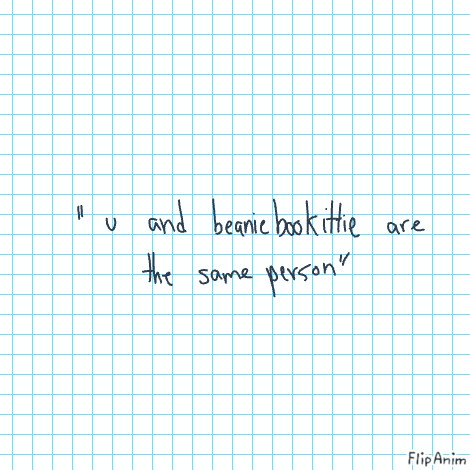 " u and beaniebookittie are
the same person"
FlipAnim